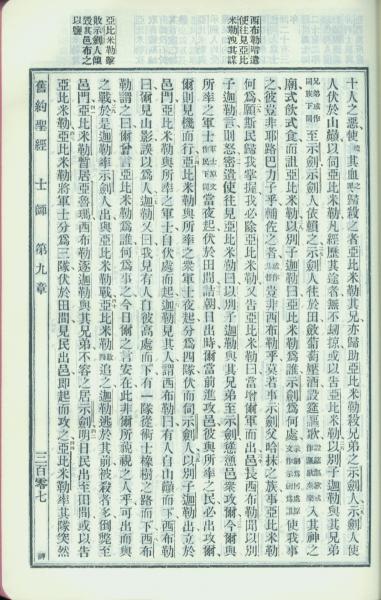 西布勒暗遣
使往見亞比
米勒洩其謀
亞比米勒擊
敗示劍人傾
毀其邑布之
以鹽
十人之惡使其血歸殺之者亞比米勒其兄亦歸助亞比米勒殺兄弟之示劍人示劍人使
人伏於山巔以伺亞比米勒凡經歷其途者無不刼掠或以告亞比米勒以別子迦勒與其兄弟
兄弟或作族人下同至示劍示劍人依賴之示劍人往於田斂葡萄壓酒設筵謳歌入其神之
廟式飲式食而詛亞比米勒以別子迦勒曰亞比米勒爲誰示劍爲何處使我事
之彼豈非耶路巴力子乎輔佐之者豈非西布勒乎莫若事示劍父哈抹之族事亞比米勒
何爲願斯民歸我掌握我必除亞比米勒又告亞比米勒曰當增爾軍而出邑長西布勒聞以別
子迦勒言則怒密遣使往見亞比米勒曰以別子迦勒與其兄弟至示劍慫慂邑衆攻爾今爾與
所率之軍士軍士原文作民下同當夜起伏於田間詰朝日出時爾當前進攻邑彼與所率之民必出攻爾
爾則見機而行亞比米勒與所率之衆軍士夜起分爲四隊伏而伺示劍人以別子迦勒出立於
邑門亞比米勒與所率之軍士自伏處而起迦勒見其人謂西布勒曰有人自山巔而下西布勒
曰爾見山影誤以爲人迦勒又曰我見有人自彼高處而下有一隊從術士橡樹之路而下西布
勒謂之曰爾嘗言亞比米勒爲誰何爲事之今日爾之言安在此非爾所藐視之人乎可出而與
之戰於是迦勒率示劍人出與亞比米勒戰亞比米勒追之迦勒逃於其前被殺者多倒斃至
邑門亞比米勒暫居亞魯瑪西布勒逐迦勒與其兄弟不容之居示劍明日民出至田間或以告
亞比米勒亞比米勒將軍士分爲三隊伏於田間見民出邑即起而攻之亞比米勒率其隊突然
舊約聖經 士師 第九章 三百零七